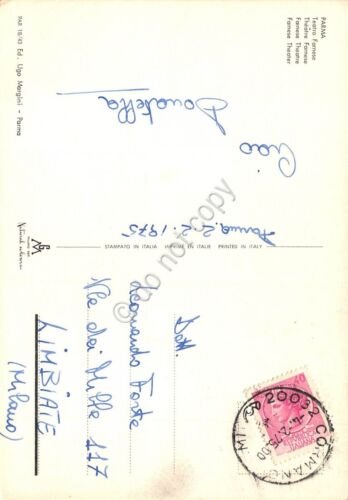 PARMA
Teatro Farnese
Théatre Farnese
Farnese Theatre
Farnese Theater
PAR 18/43 Ed. Ugo Margini - Parma
Ciao
Donatella
Parma 2.2.1975
STAMPATO IN ITALIA IMPRIMÉ EN ITALIE PRINTED IN ITALY
Dott.
Leonardo Forte
Via dei Mille 117
LIMBIATE
(Milano)
20032 CORMANO
do not copy